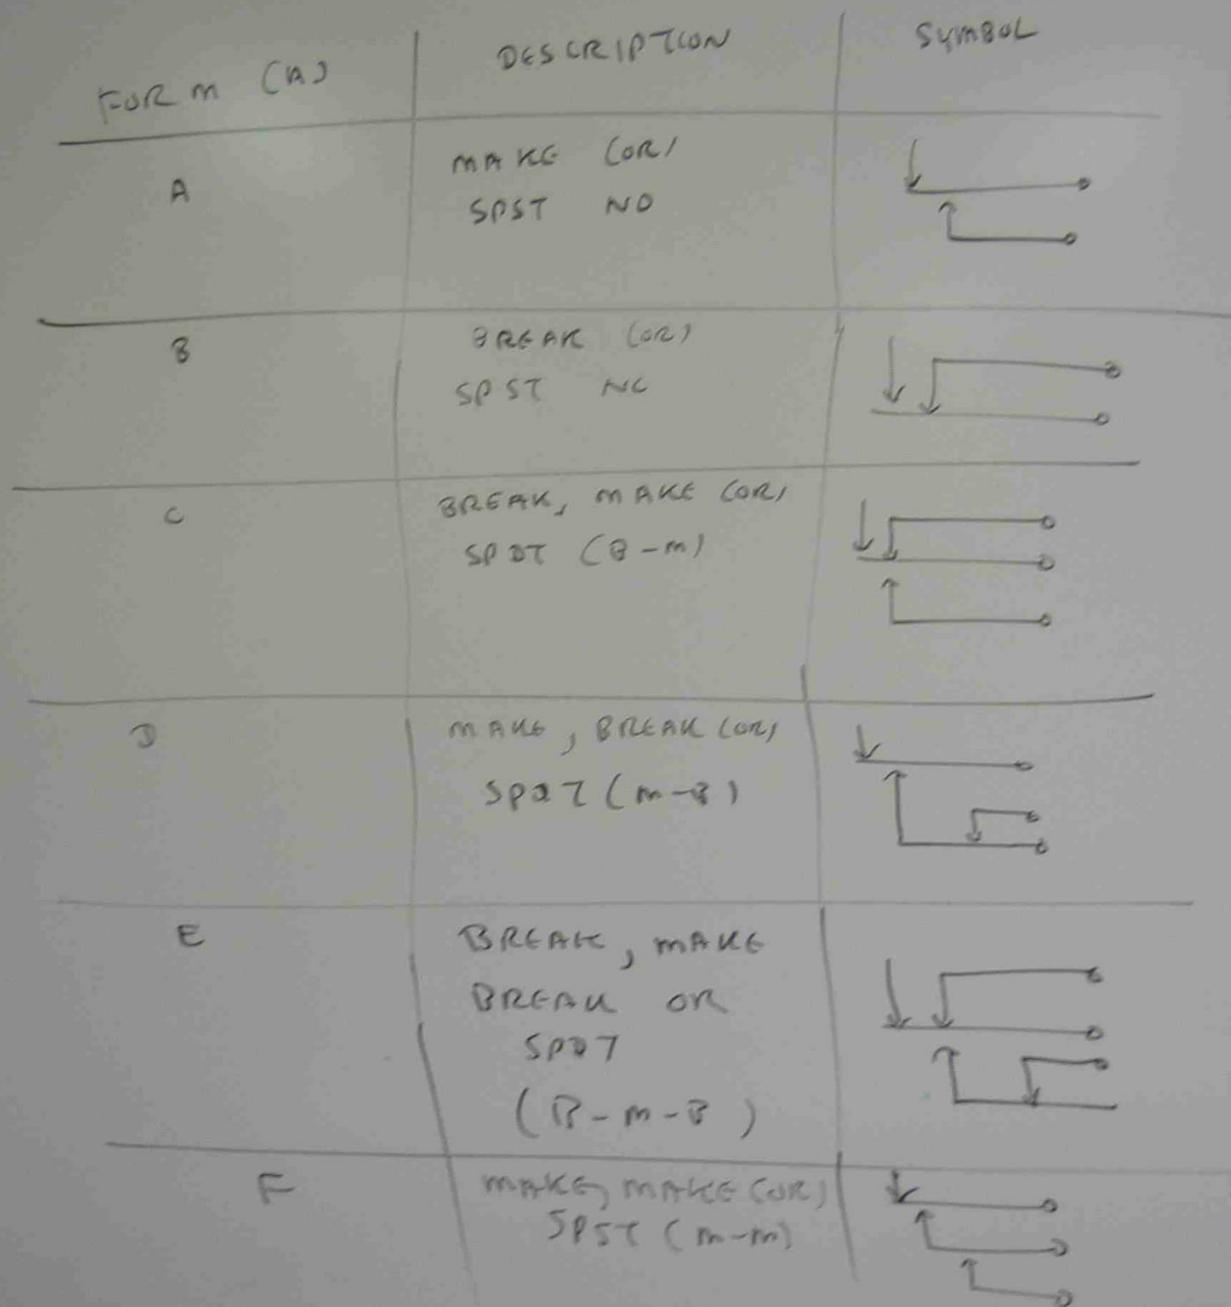 FORM (A) DESCRIPTION SYMBOL
A MAKE (OR)
SPST NO
B BREAK (OR)
SPST NC
C BREAK, MAKE (OR)
SPDT (B-M)
D MAKE, BREAK (OR)
SPDT (M-B)
E BREAK, MAKE
BREAK OR
SPDT
(B-M-B)
F MAKE, MAKE (OR)
SPST (M-M)